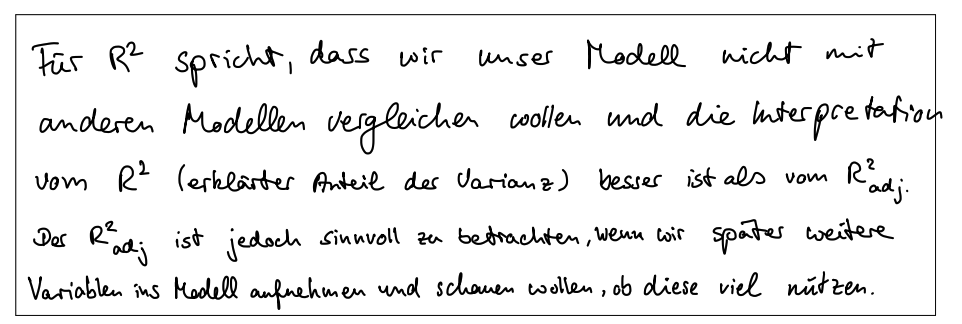 Für R² spricht, dass wir unser Modell nicht mit
anderen Modellen vergleichen wollen und die Interpretation
vom R² (erklärter Anteil der Varianz) besser ist als vom R²adj.
Der R²adj ist jedoch sinnvoll zu betrachten, wenn wir später weitere
Variablen ins Modell aufnehmen und schauen wollen, ob diese viel nützen.